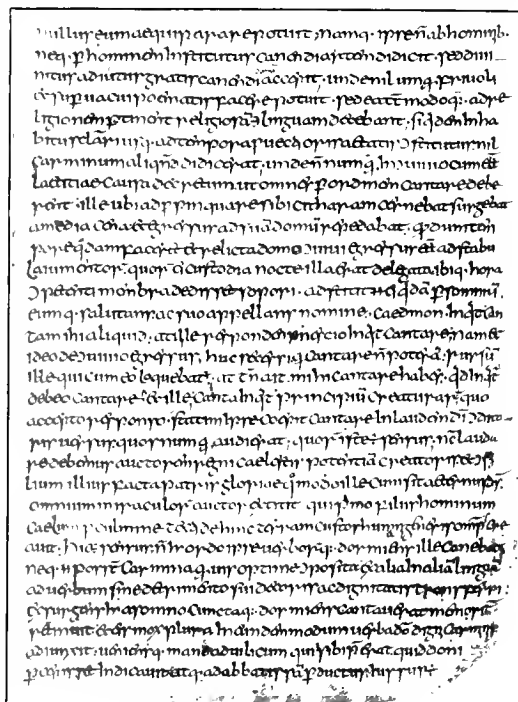 nullus eum aequiparare potuit; namq· ipse n̄ ab hominib·
neq· p̄ hominem institutus canendi artem didicit· sed diui
nitus adiutus gratis canendi donū accepit; unde nil umq̄ friuoli
et superuacui poematis facere potuit· sed ea tm̄modo q· ad re
ligionem ꝑtinent religiosā eius linguam decebant; siq̄dem in ha
bitu saeculari usq· ad tempora ꝓuectioris aetatis ↄstitutus nil
carminum aliqn̄do didicerat; unde n̄ numq̄ in conuiuio cum eēt
laetitiae causa decretum ut omnes ꝑ ordinem cantare debe
rent· ille ubi adpropinquare sibi citharam cernebat surgebat
a media caena & egressus ad suā domum repedabat; qd̄ dum tem
pore q̄dam faceret & relicta domo ↄuiuii egressus eēt ad stabu
la iumentor̄ quor̄ ei custodia nocte illa erat delegata ibiq· hora
ↄpetenti membra dedisset sopori· adstitit ei q̄dā ꝑ somniū
eumq· salutans ac suo appellans nomine; caedmon inq̄t canta
m̄ aliquid· at ille respondens nescio inq̄t cantare; nam et
ideo de ↄuiuio egressus huc secessi q· cantare n̄ poterā; rursū
ille qui cum eo loquebat̄· at tam̄ ait· mihi cantare habes; qd̄ inq̄t
debeo cantare; & ille canta inq̄t principiū creaturar̄; quo
accepto responso· statim ipse coepit cantare in laudem dī ↄdito
ris uersus quos numq̄ audierat; quor̄ iste ē sensus; nc̄ lauda
re debemus auctorem regni caelestis potentiā creatoris & ↄsi
lium illius facta patris gloriae; q̄modo ille cum sit aet̄n̄ d̄s
omnium miraculor̄ auctor extitit qui primo filiis hominum
caelum ꝑ culmine tecti dehinc terram custos humani generis om̄ps cre
auit; hic ē sensus n̄ h̄ ordo ipse uerbor̄ q· dormiens ille canebat
neq· n̄ poss̄t carmina q̄uis optime ↄposita ex alia in aliā linguā
ad uerbum sine detrimento sui decoris ac dignitatis transferri;
exsurgens h̄ a somno cuncta q· dormiens cantauerat memorit̄
retinuit & eis mox plura in eundem modum uerba dō digni carminis
adiunxit; ueniensq· mane ad uilicum qui sibi p̄erat quid doni
ꝑcepisset indicauit atq· ad abbatissā ꝑductus iussus ē